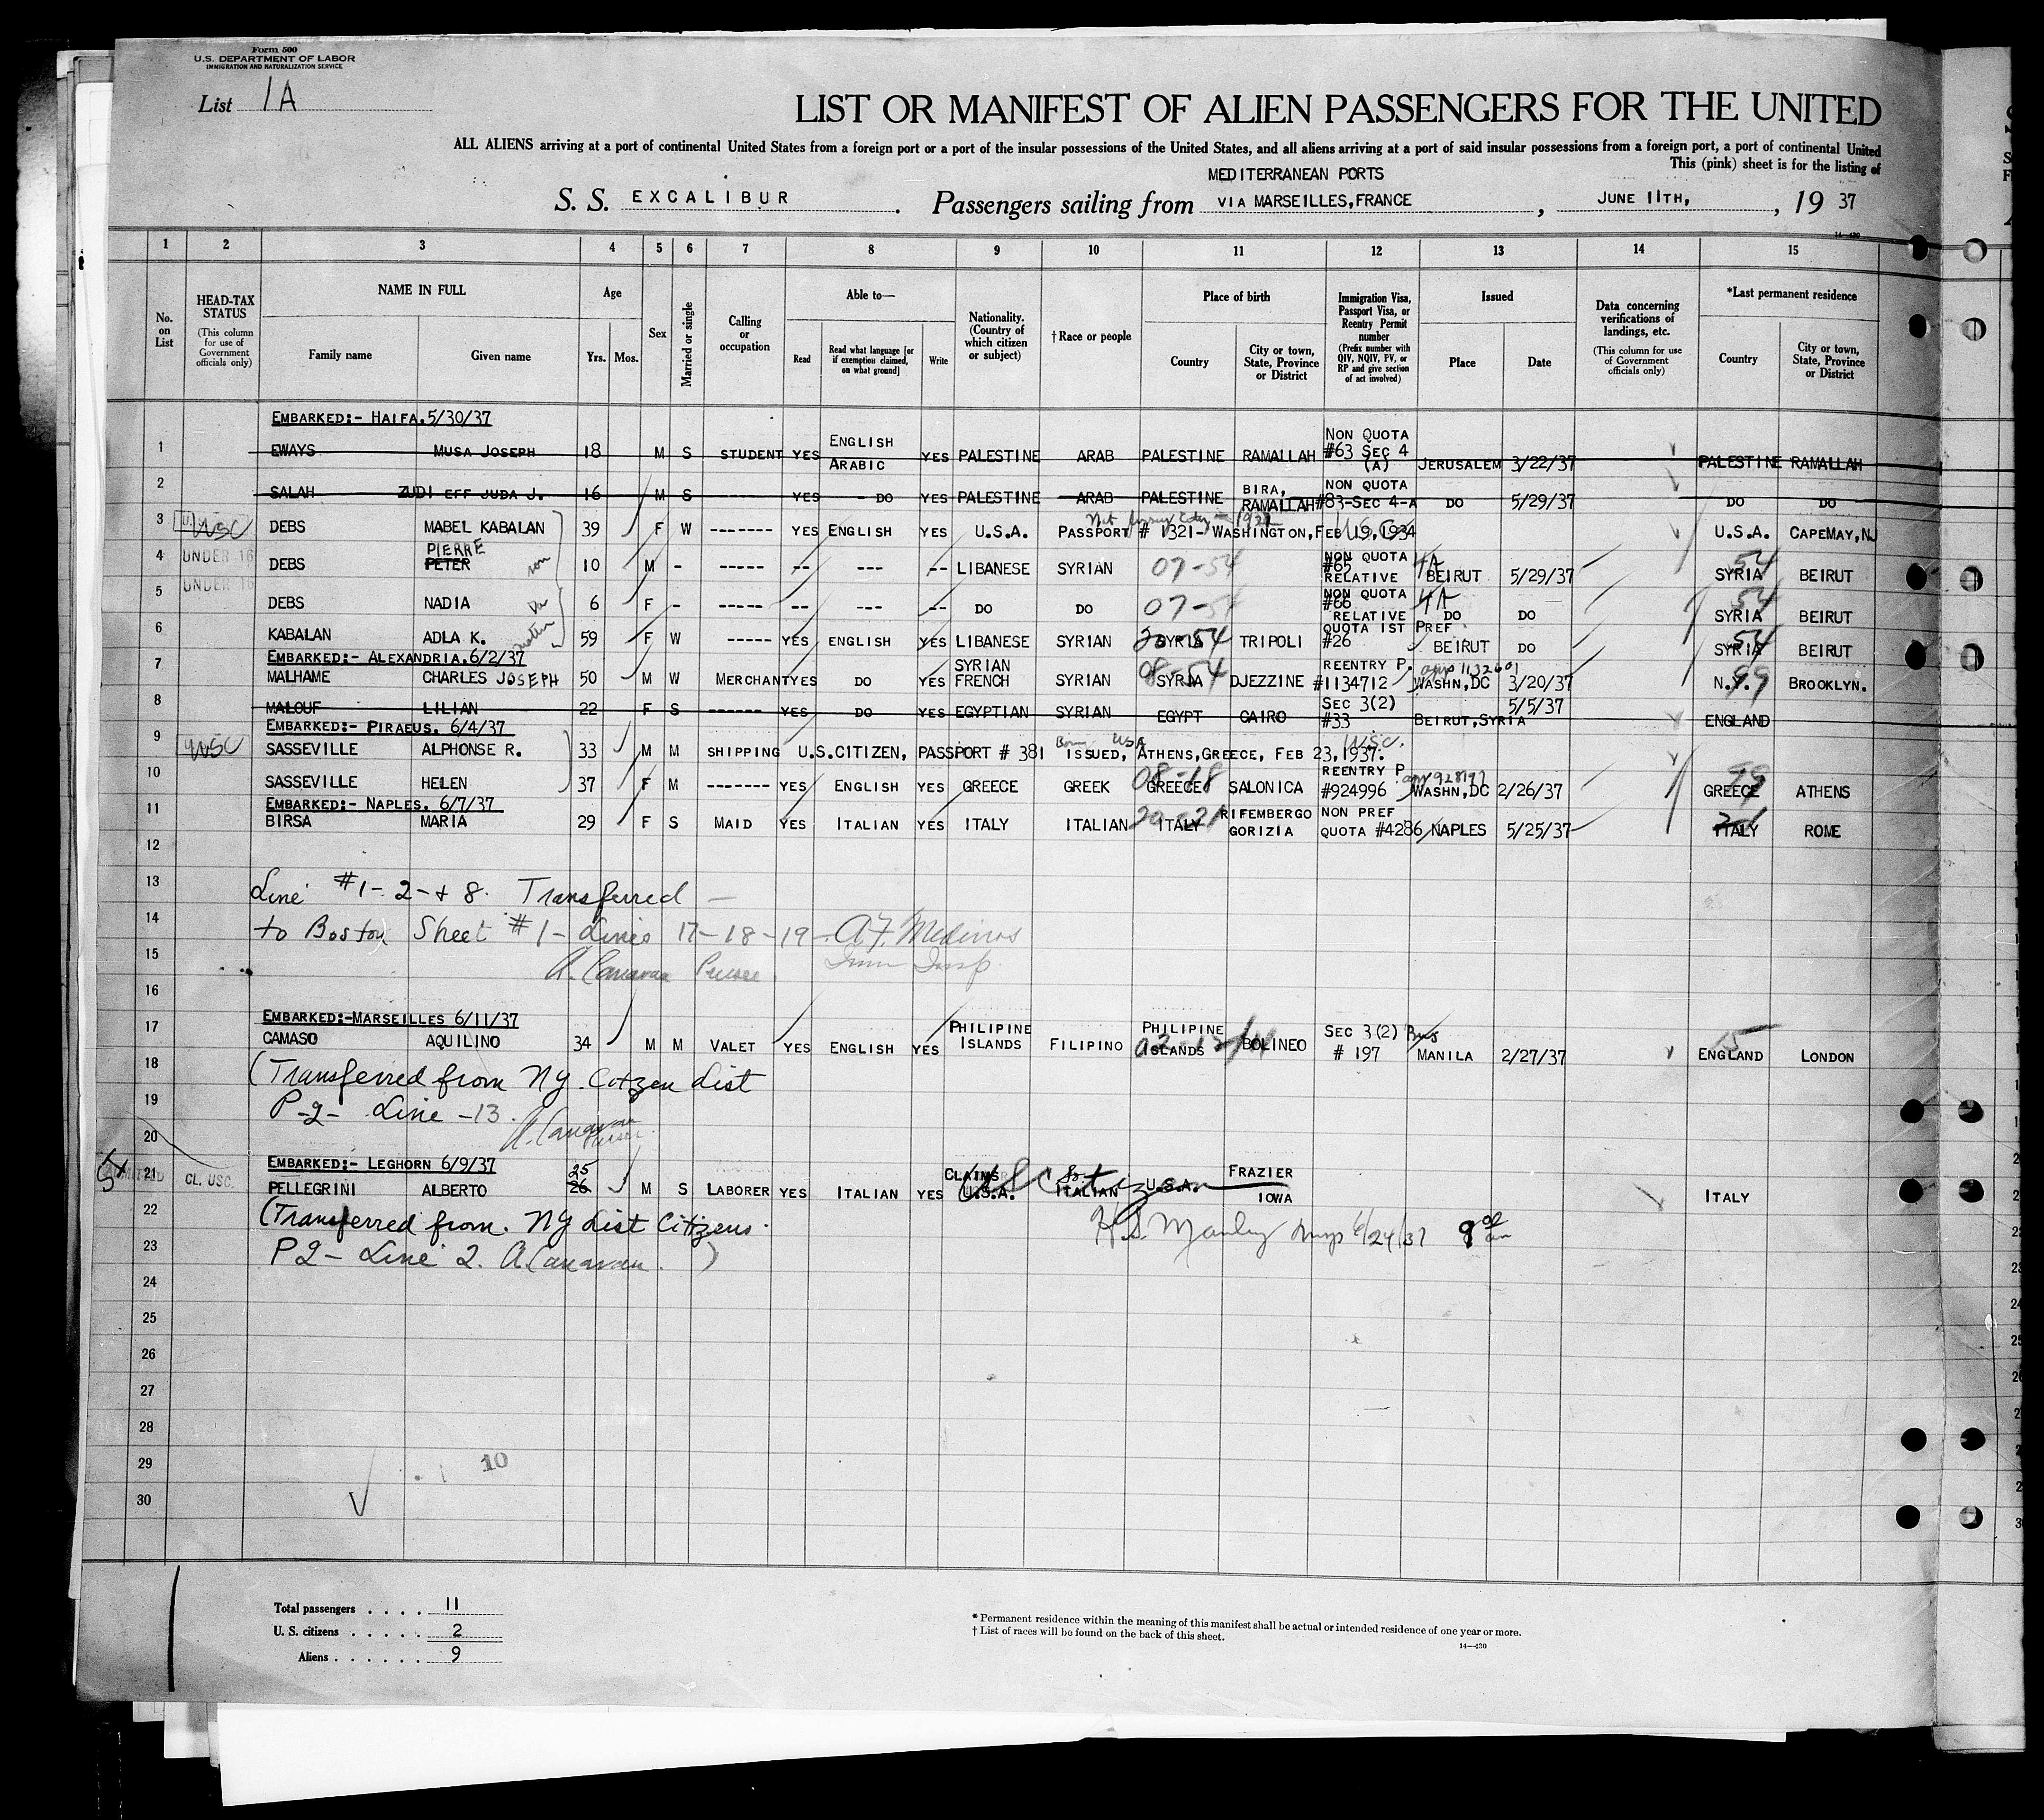 Form 500
U.S. DEPARTMENT OF LABOR
IMMIGRATION AND NATURALIZATION SERVICE
List 1A
LIST OR MANIFEST OF ALIEN PASSENGERS FOR THE UNITED
ALL ALIENS arriving at a port of continental United States from a foreign port or a port of the insular possessions of the United States, and all aliens arriving at a port of said insular possessions from a foreign port, a port of continental United
This (pink) sheet is for the listing of
MEDITERRANEAN PORTS
S. S. EXCALIBUR. Passengers sailing from VIA MARSEILLES, FRANCE, JUNE 11TH, , 19 37
14-430
1 2 3 4 5 6 7 8 9 10 11 12 13 14 15
No. on List
HEAD-TAX STATUS
(This column for use of Government officials only)
NAME IN FULL
Family name Given name
Age
Yrs. Mos.
Sex
Married or single
Calling or occupation
Able to—
Read
Read what language [or if exemption claimed, on what ground]
Write
Nationality. (Country of which citizen or subject)
† Race or people
Place of birth
Country
City or town, State, Province or District
Immigration Visa, Passport Visa, or Reentry Permit number
(Prefix number with QIV, NQIV, PV, or RP and give section of act involved)
Issued
Place Date
Data concerning verifications of landings, etc.
(This column for use of Government officials only)
*Last permanent residence
Country
City or town, State, Province or District
EMBARKED:- HAIFA. 5/30/37
1 EWAYS MUSA JOSEPH 18 M S STUDENT YES ENGLISH ARABIC YES PALESTINE ARAB PALESTINE RAMALLAH NON QUOTA #63 SEC 4 (A) JERUSALEM 3/22/37 PALESTINE RAMALLAH
2 SALAH ZUDI EFF JUDA J. 16 M S ----- YES - DO YES PALESTINE ARAB PALESTINE BIRA, RAMALLAH NON QUOTA #83-SEC 4-A DO 5/29/37 DO DO
3 USC DEBS MABEL KABALAN 39 F W ------- YES ENGLISH YES U.S.A. PASSPORT # 1321- WASHINGTON, FEB 19, 1934 U.S.A. CAPEMAY, NJ
4 UNDER 16 DEBS PIERRE PETER son 10 M - ----- -- --- -- LIBANESE SYRIAN 07-54 NON QUOTA #65 RELATIVE 4A BEIRUT 5/29/37 54 SYRIA BEIRUT
5 UNDER 16 DEBS NADIA Da 6 F - ----- -- --- -- DO DO 07-54 NON QUOTA #66 RELATIVE 4A DO DO 54 SYRIA BEIRUT
6 KABALAN ADLA K. 59 F W ----- YES ENGLISH YES LIBANESE SYRIAN SYRIA 54 TRIPOLI QUOTA 1ST PREF. #26 BEIRUT DO 54 SYRIA BEIRUT
EMBARKED:- ALEXANDRIA. 6/2/37
7 MALHAME CHARLES JOSEPH 50 M W MERCHANT YES DO YES SYRIAN FRENCH SYRIAN 08-54 SYRIA DJEZZINE REENTRY P. #1134712 1132601 WASHN, DC 3/20/37 N.Y. 99 BROOKLYN.
8 MALOUF LILIAN 22 F S ------ YES DO YES EGYPTIAN SYRIAN EGYPT CAIRO SEC 3(2) #33 BEIRUT, SYRIA 5/5/37 ENGLAND
EMBARKED:- PIRAEUS. 6/4/37
9 USC SASSEVILLE ALPHONSE R. 33 M M SHIPPING U.S. CITIZEN, PASSPORT # 381 ISSUED, ATHENS, GREECE, FEB 23, 1937. Born USA USC.
10 SASSEVILLE HELEN 37 F M ------- YES ENGLISH YES GREECE GREEK 08-18 GREECE SALONICA REENTRY P #924996 928197 WASHN, DC 2/26/37 99 GREECE ATHENS
EMBARKED:- NAPLES. 6/7/37
11 BIRSA MARIA 29 F S MAID YES ITALIAN YES ITALY ITALIAN 20-21 ITALY RIFEMBERGO GORIZIA NON PREF QUOTA #4286 NAPLES 5/25/37 ITALY ROME
12
13 Line #1- 2-+ 8. Transferred
14 to Boston Sheet #1- Lines 17-18-19- A.F. Medinos
15 A. Canavan Purser Imm Insp.
16
EMBARKED:-MARSEILLES 6/11/37
17 CAMASO AQUILINO 34 M M VALET YES ENGLISH YES PHILIPINE ISLANDS FILIPINO PHILIPINE ISLANDS BOLINEO SEC 3(2) # 197 MANILA 2/27/37 15 ENGLAND LONDON
18 (Transferred from NY. Citzen List
19 P-2- Line -13.
20 A. Canavan Purser.
EMBARKED:- LEGHORN 6/9/37
21 ADMITTED CL. USC. PELLEGRINI ALBERTO 25 26 M S LABORER YES ITALIAN YES CLAIMS U.S.A. ITALIAN U.S.A. FRAZIER IOWA US Citizen ITALY
22 (Transferred from. NY List Citizens. H.S. Manley insp 6/24/37
23 P2- Line 2. A. Canavan. )
24
25
26
27
28
29 10
30
Total passengers . . . . 11
U. S. citizens . . . . . 2
Aliens . . . . . . 9
* Permanent residence within the meaning of this manifest shall be actual or intended residence of one year or more.
† List of races will be found on the back of this sheet. 14—430